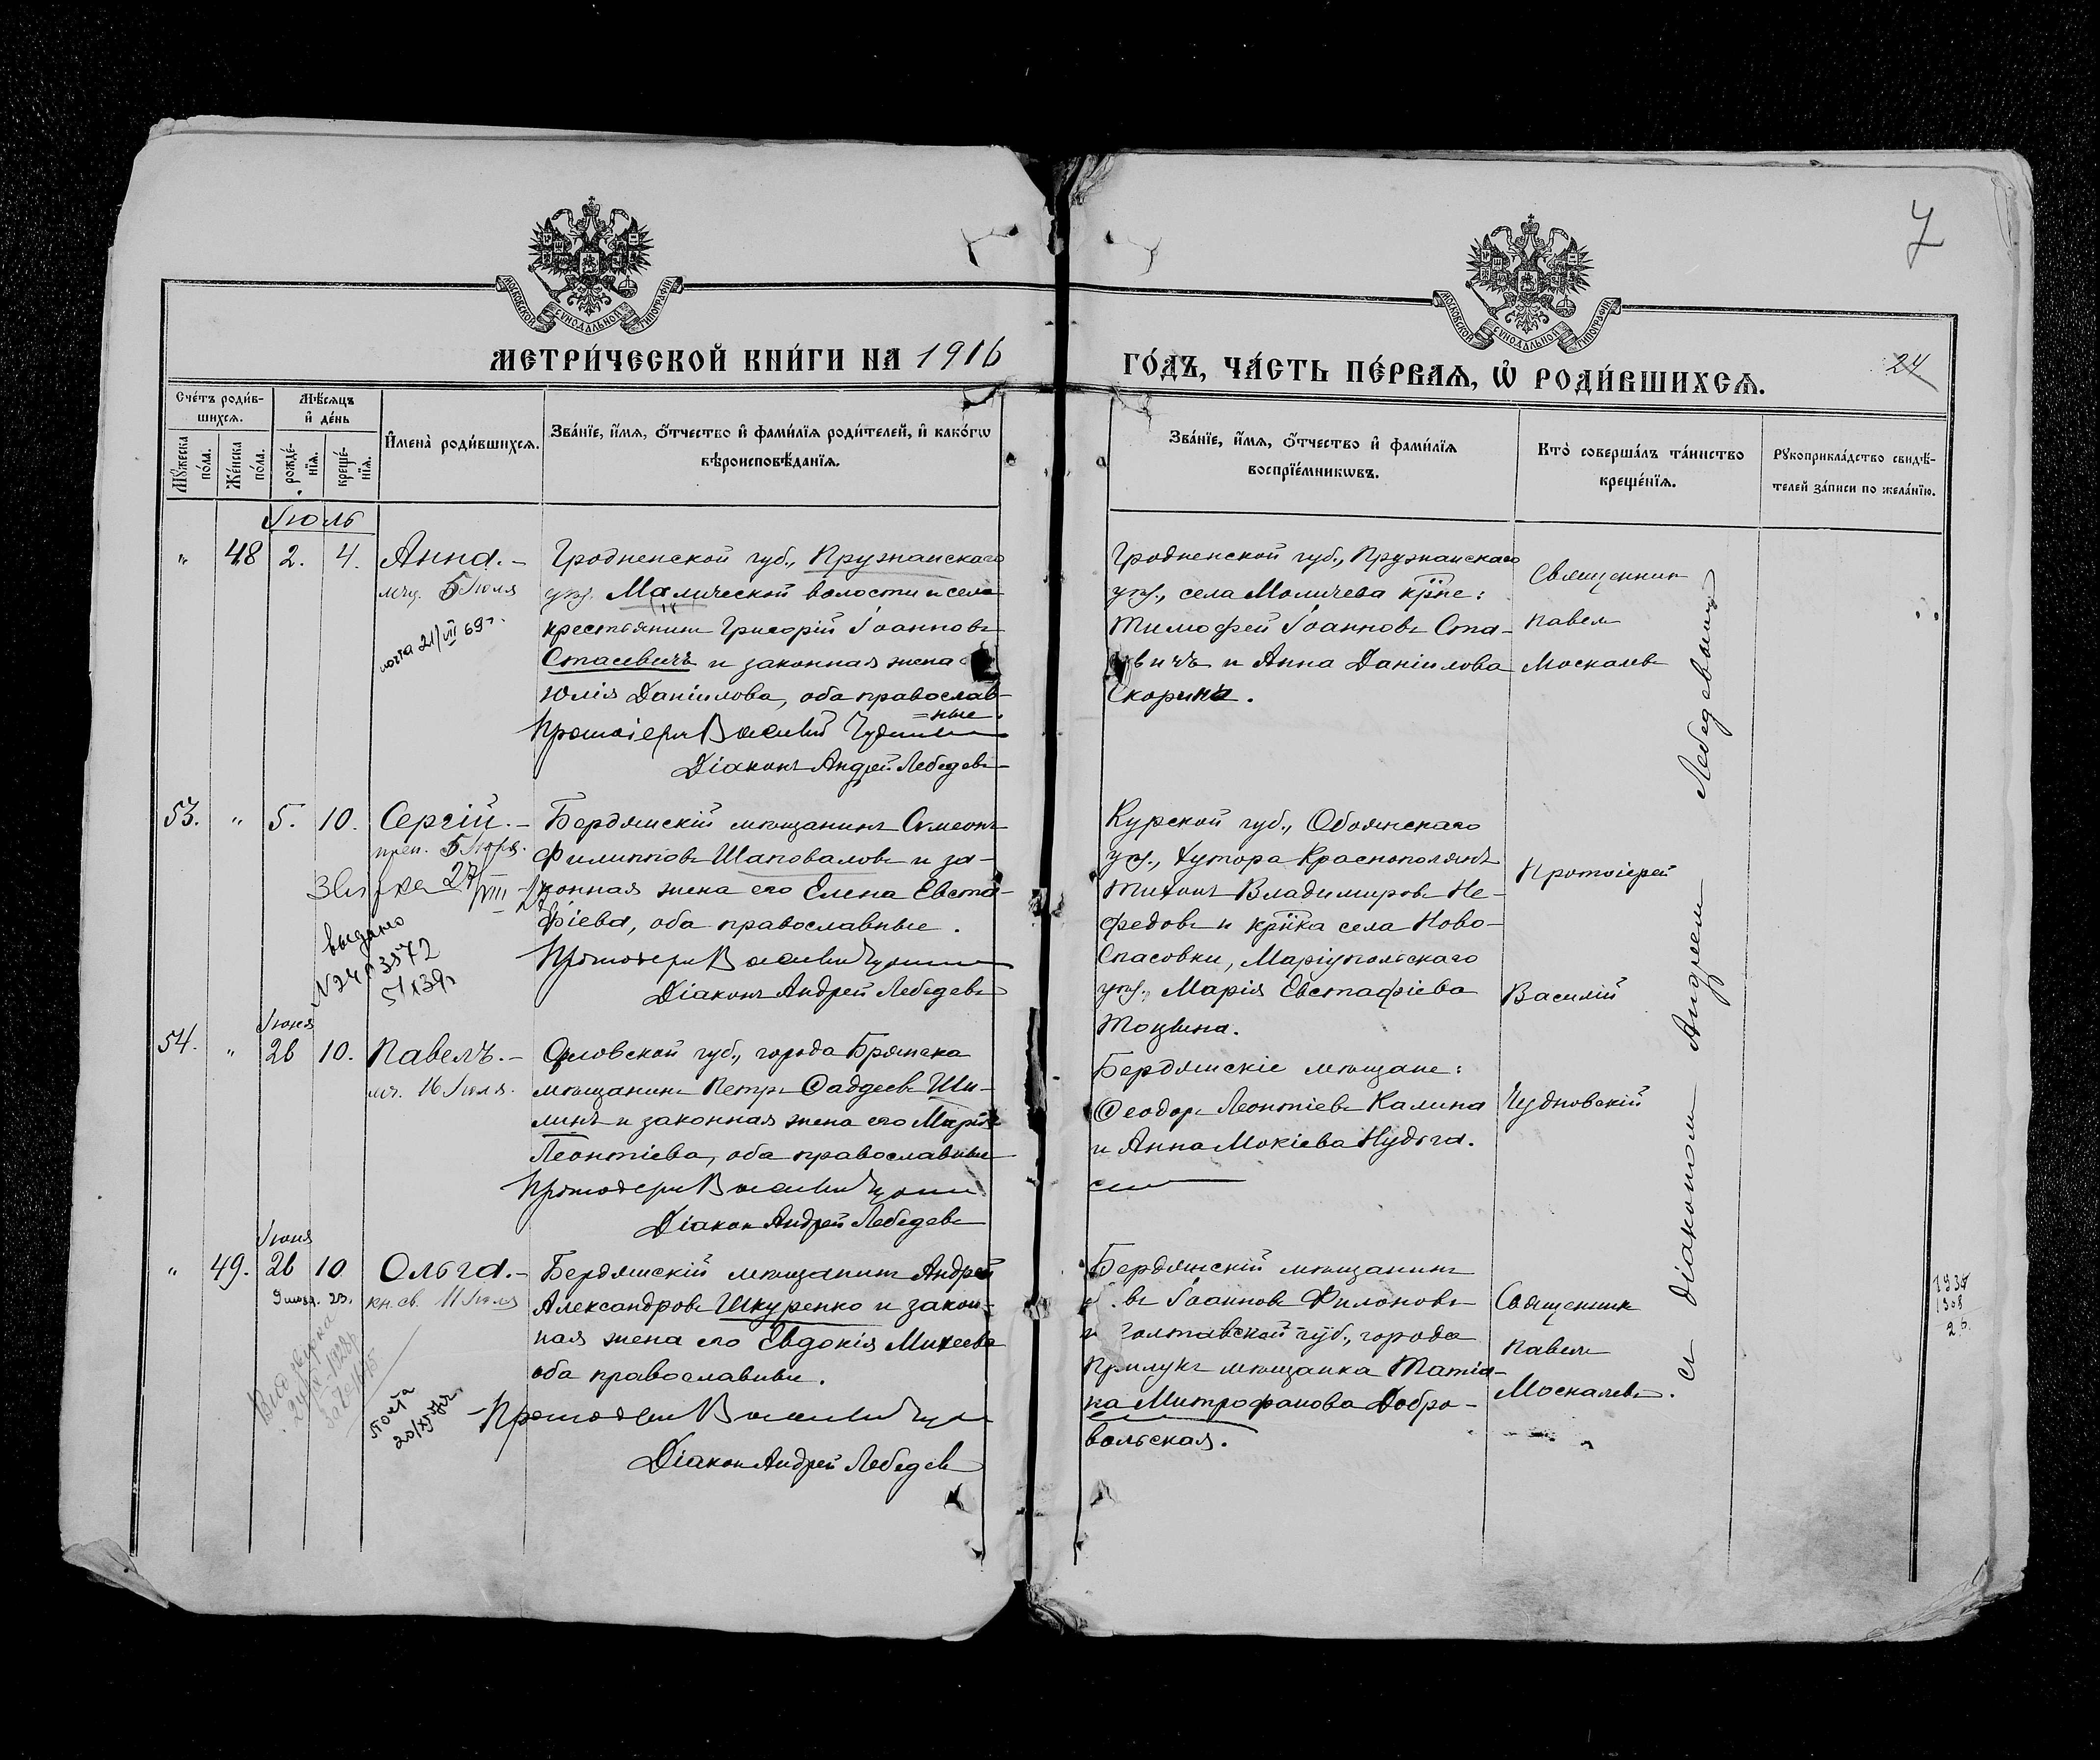 7
МОСКОВСКОЙ СУНОДАЛЬНОЙ ТИПОГРАФІИ
МОСКОВСКОЙ СУНОДАЛЬНОЙ ТИПОГРАФІИ
МЕТРИ́ЧЕСКОЙ КНИ́ГИ НА 1916
ГО́ДЪ, ЧА́СТЬ ПЕ́РВАѦ, Ѡ҆ РОДИ́ВШИХСѦ.
24
Сче́тъ роди́в-
шихсѧ.
Мꙋ́жеска по́ла.
Же́нска по́ла.
Мѣ́сѧцъ
и҆ де́нь
рожде́-
нїѧ.
креще́-
нїѧ.
И҆мена̀ роди́вшихсѧ.
Зва́нїе, и҆́мѧ, ѻ҆́тчество и҆ фами́лїѧ роди́телей, и҆ како́гѡ
вѣроисповѣ́данїѧ.
Зва́нїе, и҆́мѧ, ѻ҆́тчество и҆ фами́лїѧ
воспрїе́мникѡвъ.
Кто̀ соверша́лъ та́инство
креще́нїѧ.
Рꙋкоприкла́дство свидѣ́-
телей за́писи по жела́нїю.
Іюль
" 48 2. 4. Анна.-
мц. 5 Іюля
Гродненской губ., Пружанскаго
уѣз. Малической волости и села
крестьянинъ Григорій Іоанновъ
Стасевичъ и законная жена
Юлія Даніилова, оба православ-
=ные.
Протоіерей Василій
Діаконъ Андрей Лебедевъ
Гродненской губ., Пружанскаго
уѣз., села Маличева кр̃не:
Тимофей Іоанновъ Ста-
вичъ и Анна Даніилова
Скорина.
Священникъ
Павелъ
Москалевъ
53. " 5. 10. Сергій.-
преп. 5 Іюля.
выдано
Бердянскій мѣщанинъ Симеонъ
Филипповъ Шаповаловъ и за-
конная жена его Елена Евста-
фіева, оба православные.
Протоіерей Василій
Діаконъ Андрей Лебедевъ
Курской губ., Обоянскаго
уѣз., хутора Краснополянъ
Тихонъ Владимировъ Не-
федовъ и кр̃нка села Ново-
Спасовки, Маріупольскаго
уѣз., Марія Евстафіева
Протоіерей
Василій
Чудновскій
Іюня
54. " 26 10. Павелъ.-
мч. 16 Іюля.
Орловской губ., города Брянска
мѣщанинъ Петръ Ѳаддеевъ Ши-
линъ и законная жена его Марія
Леонтіева, оба православные
Протоіерей Василій
Діаконъ Андрей Лебедевъ
Бердянскіе мѣщане:
Ѳеодоръ Леонтіевъ Калина
и Анна Мокіева Нудьга.
Іюня
" 49. 26 10 Ольга.-
кн. св. 11 Іюля
почта
Бердянскій мѣщанинъ Андрей
Александровъ Шкуренко и закон-
ная жена его Евдокія Михеева
оба православные.
Протоіерей Василій
Діаконъ Андрей Лебедевъ
Бердянскій мѣщанинъ
Іоанновъ Филоновъ
Полтавской губ., города
Прилукъ мѣщанка Татіа-
на Митрофанова Добро-
вольская.
Священникъ
Павелъ
Москалевъ.
съ діакономъ Андреемъ Лебедевымъ